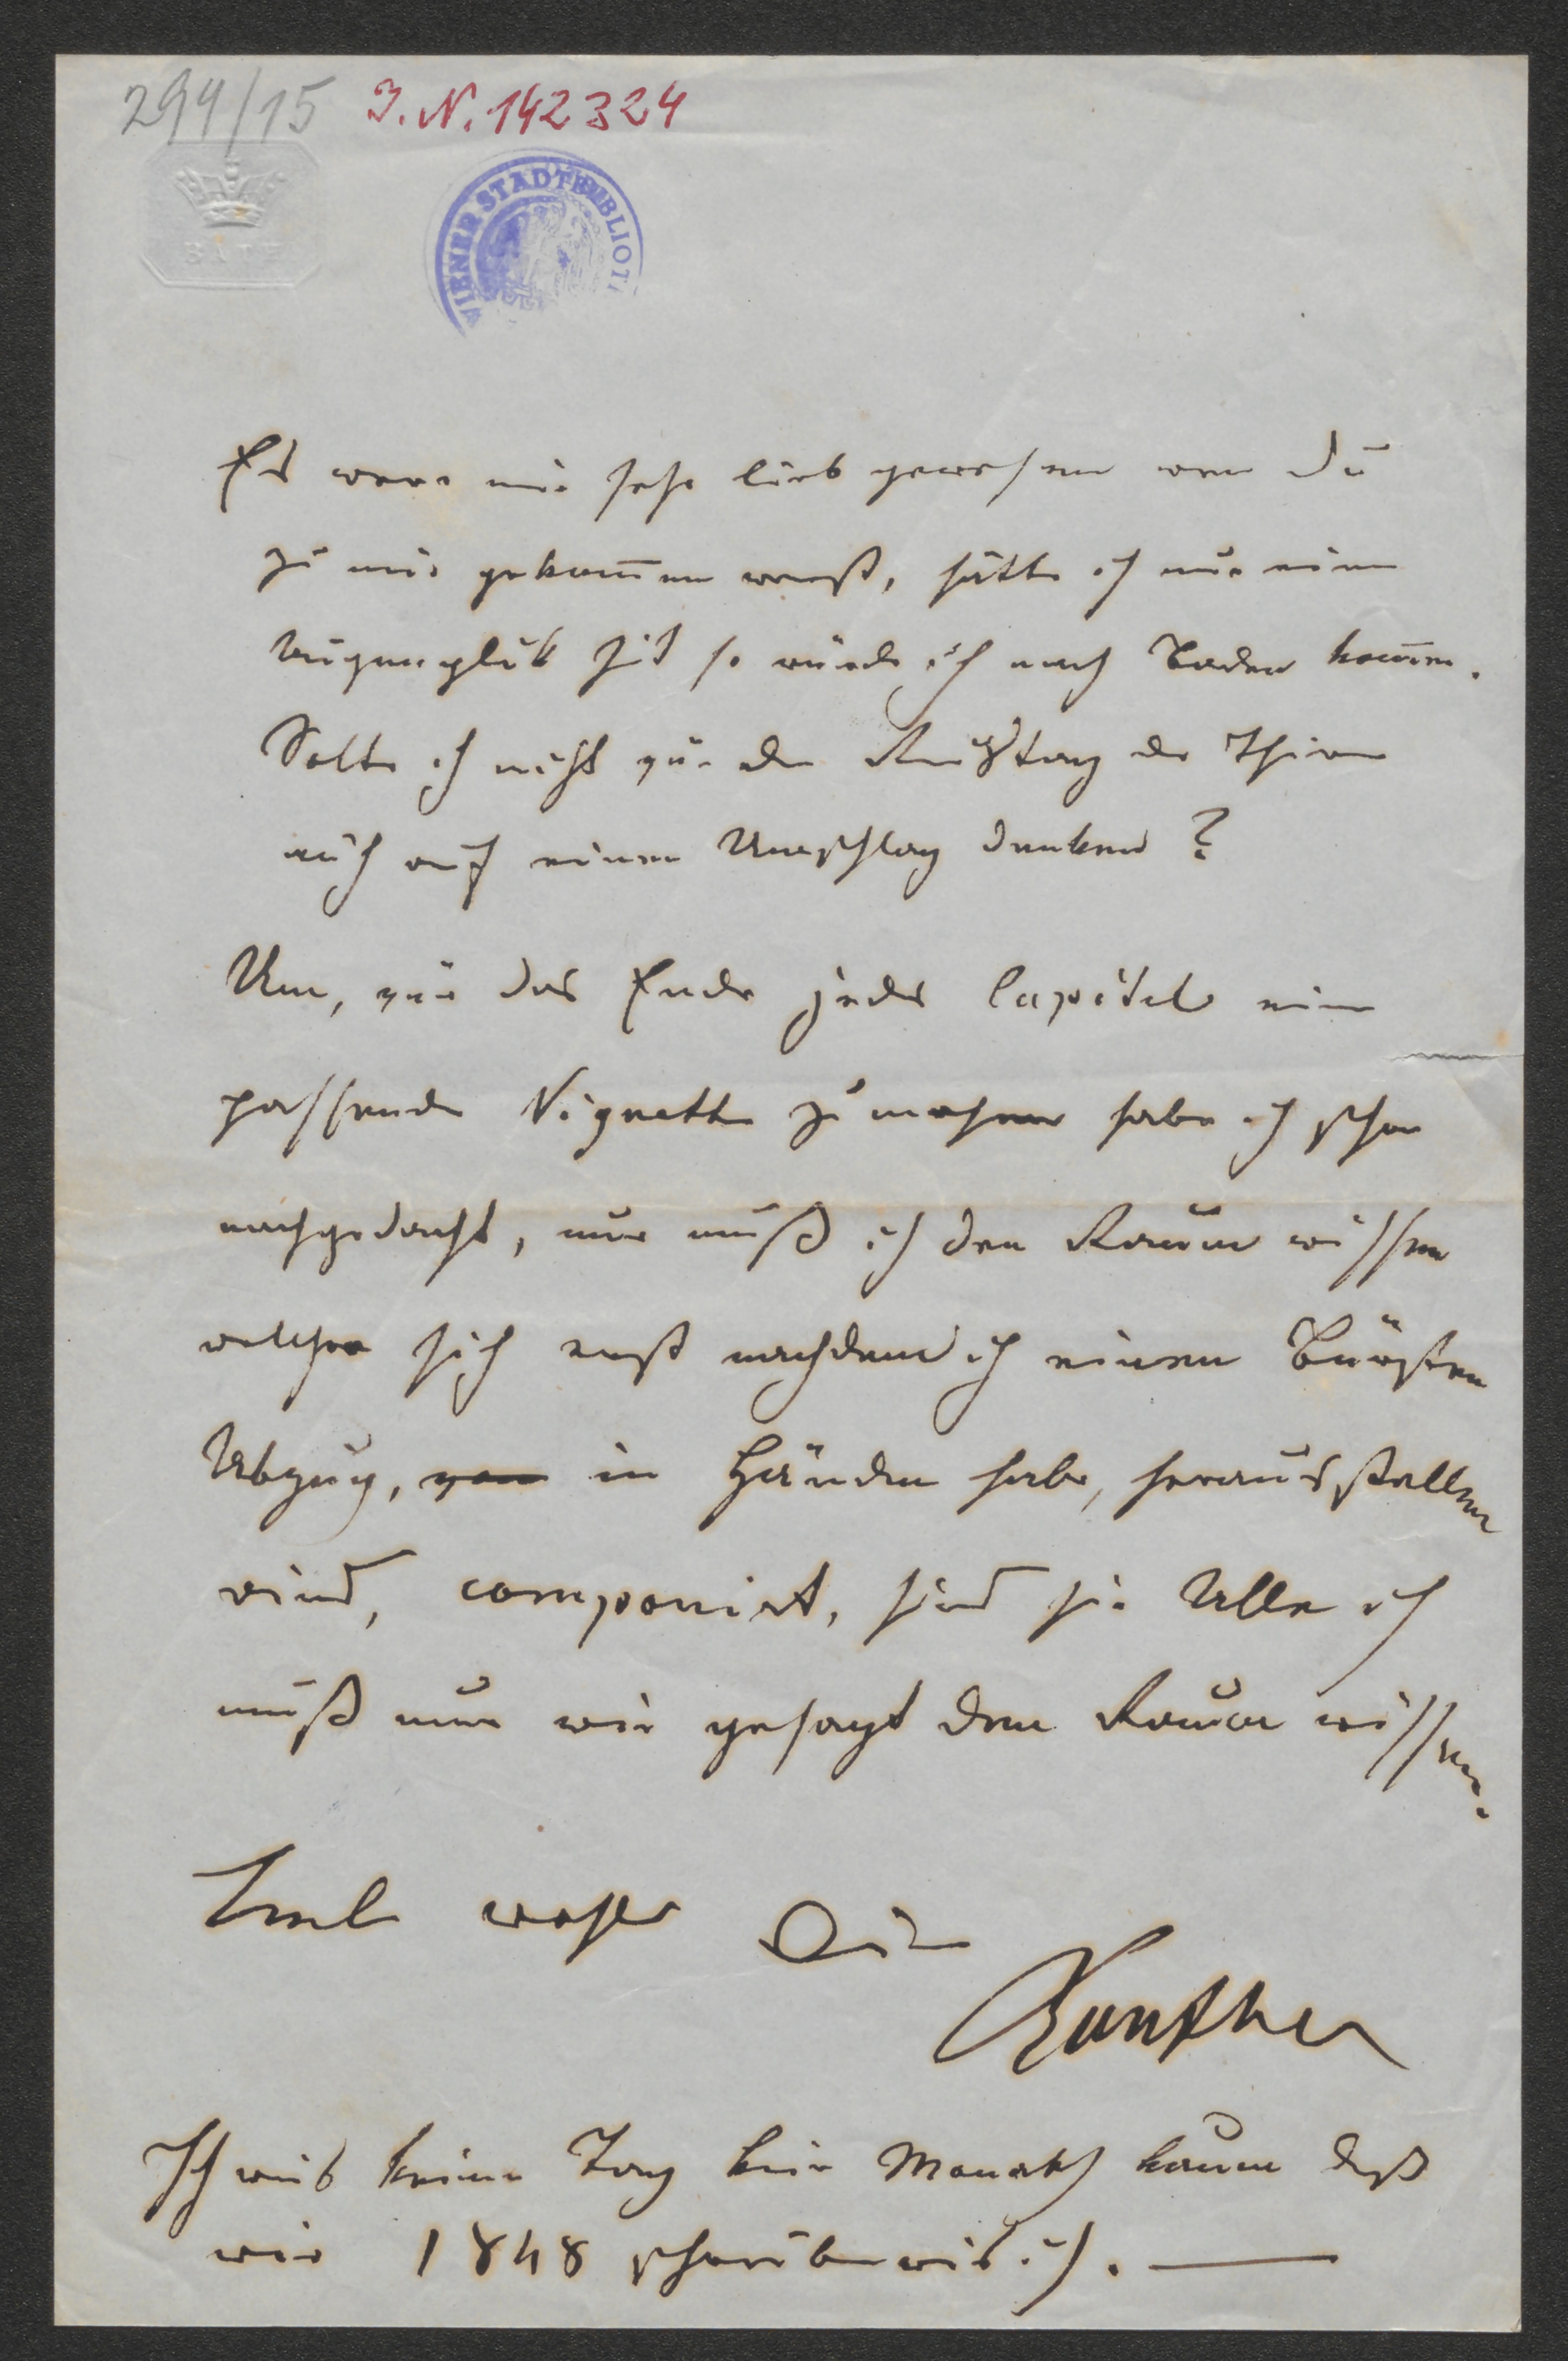 294/15 I.N. 142324
BATH
WIENER STADTBIBLIOT
Es were mir sehr lieb gewesen wen Du
zu mir gekom̄en werest, hätte ich nur einen
Augenglik Zit so würde ich nach Baden kom̄en.
Solte ich nicht zu den Reichstag der Thiere
auch auf einen Umschlag denken?
Um, zu das Ende jedes Capitel eine
passende Vignette zu machen habe ich schon
nachgedacht, nur muß ich den Raum wissen
welcher sich erst nachdem ich einen Bürsten
Abzug, von in Händen habe, herausstellen
wird, componirt, sind sie Alle ich
muß nur wie gesagt den Raum wissen.
Leeb wohl Dein
Ranfther
Ich weis keinen Tag kein Monath kaum daß
wir 1848 schreiben weis ich. —